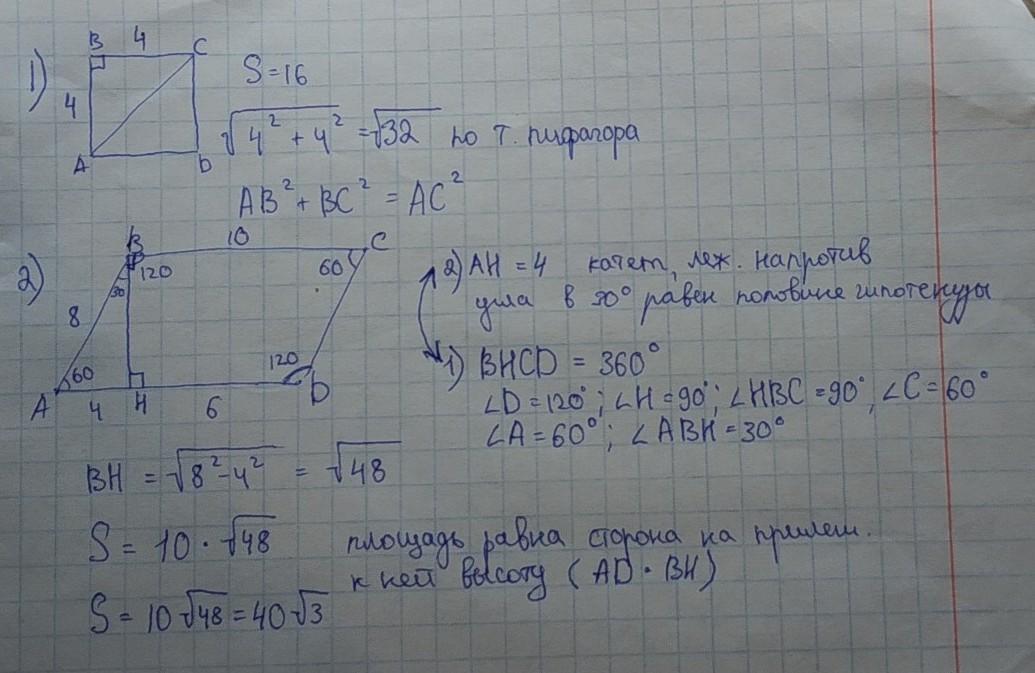 1)
B 4 C
4
A D
S=16
√4² + 4² = √32 по т. пифагора
AB² + BC² = AC²
2)
B 10 C
120 60
30
8
60 120
A 4 H 6 D
2) AH = 4 катет, леж. напротив
угла в 30° равен половине гипотенузы
1) BHCD = 360°
∠D = 120°; ∠H = 90°; ∠HBC = 90°, ∠C = 60°
∠A = 60°; ∠ABH = 30°
BH = √8² - 4² = √48
S = 10 · √48 площадь равна сторона на прилеж.
к ней высоту (AD · BH)
S = 10√48 = 40√3